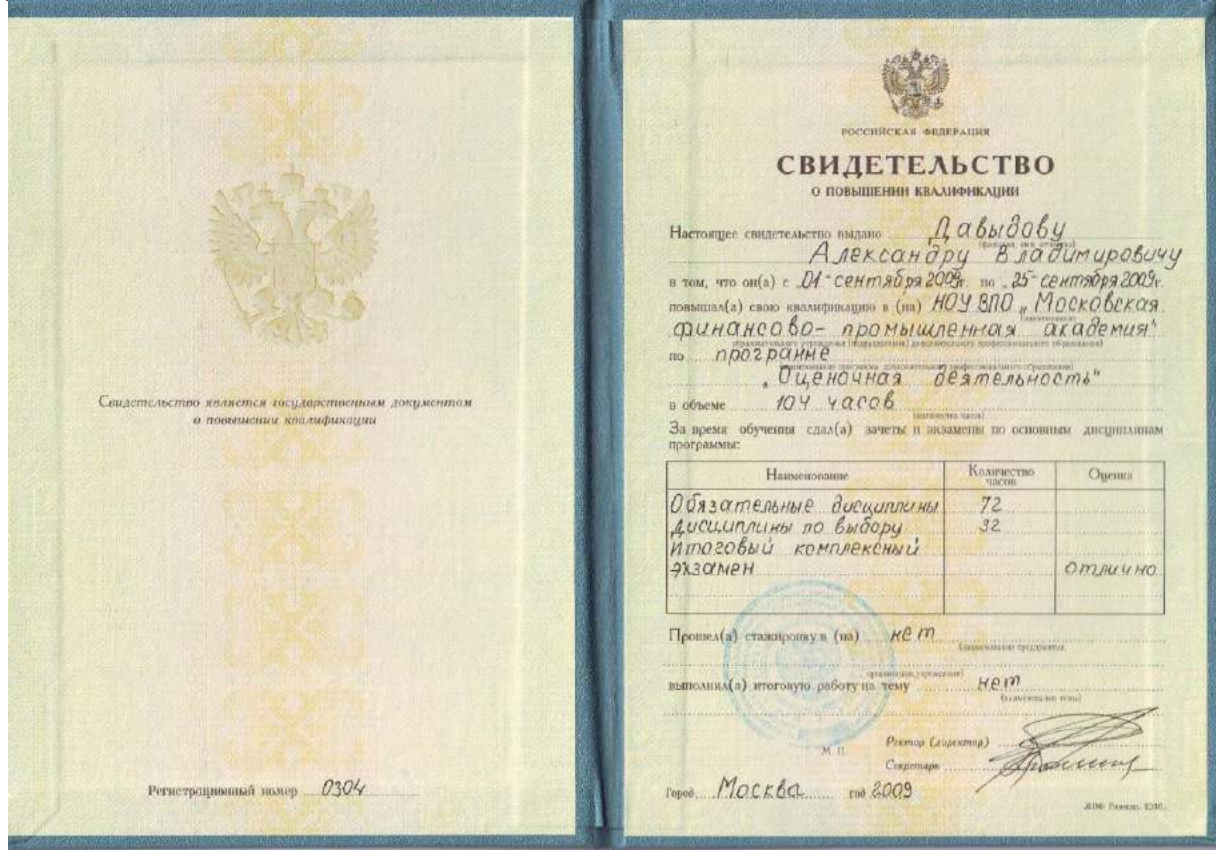 Свидетельство является государственным документом
о повышении квалификации
Регистрационный номер 0304
РОССИЙСКАЯ ФЕДЕРАЦИЯ
СВИДЕТЕЛЬСТВО
О ПОВЫШЕНИИ КВАЛИФИКАЦИИ
Настоящее свидетельство выдано Давыдову
(фамилия, имя, отчество)
Александру Владимировичу
в том, что он(а) с „01" сентября 2009г. по „25" сентября 2009г.
повышал(а) свою квалификацию в (на) НОУ ВПО „Московская
(наименование
финансово-промышленная академия"
образовательного учреждения (подразделения) дополнительного профессионального образования)
по программе
(наименование программы дополнительного профессионального образования)
„Оценочная деятельность"
в объеме 104 часов
(количество часов)
За время обучения сдал(а) зачеты и экзамены по основным дисциплинам
программы:
Наименование Количество часов Оценка
Обязательные дисциплины 72
Дисциплины по выбору 32
Итоговый комплексный
экзамен отлично
Прошел(а) стажировку в (на) нет
(наименование предприятия,
организации, учреждения)
выполнил(а) итоговую работу на тему нет
(наименование темы)
М. П. Ректор (директор)
Секретарь
Город Москва год 2009